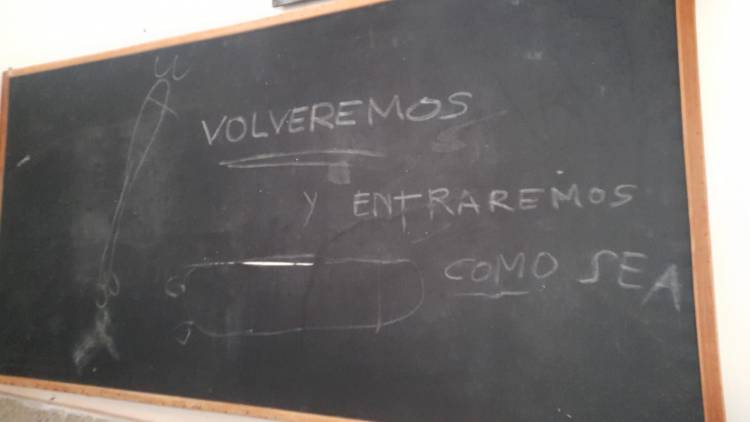 VOLVEREMOS
Y ENTRAREMOS
COMO SEA